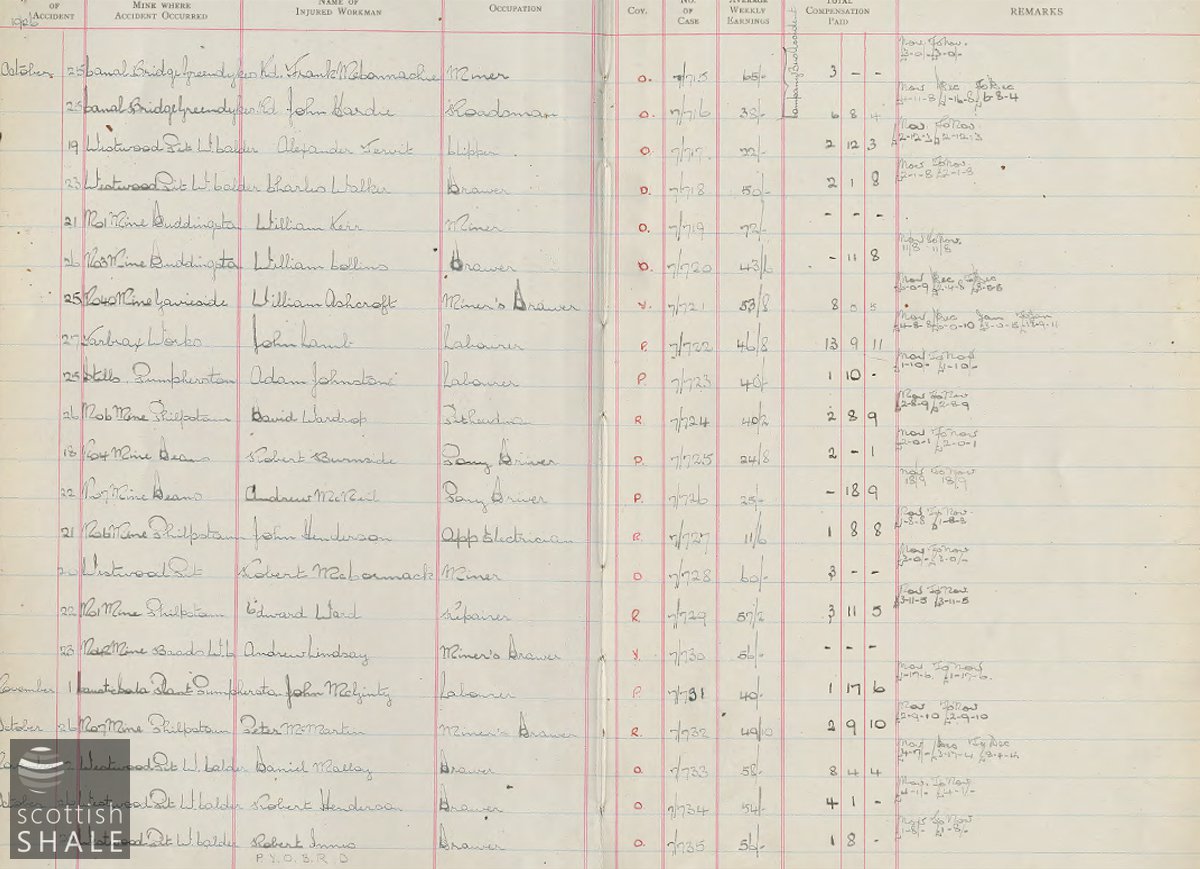 OF ACCIDENT MINE WHERE ACCIDENT OCCURRED NAME OF INJURED WORKMAN OCCUPATION Coy. NO. OF CASE AVERAGE WEEKLY EARNINGS TOTAL COMPENSATION PAID REMARKS
1926
October 25 Canal Bridge Greendykes Rd. Frank McConnachie Miner O. 7/715 65/- 3 - - Nov. To Nov. £3-0/- £3-0/-
25 Canal Bridge Greendykes Rd John Hardie Roadsman O. 7/716 38/- 6 8 4 Nov Dec To Dec
19 Westwood Pit W. Calder Alexander Jervit Clipper O. 7/717 2 12 3 Nov. To Nov. £2-12-3 £2-12-3
23 Westwood Pit W. Calder Charles Walker Drawer O. 7/718 50/- 2 1 8 Nov To Nov. £2-1-8 £2-1-8
21 No1 Mine Duddingston William Kerr Miner O. 7/719 72/- - - -
26 No3 Mine Duddingston William Collins Drawer O. 7/720 43/6 - 11 8 Nov To Nov. 11/8 11/8
25 No40 Mine Gavieside William Ashcroft Miner's Drawer Y. 7/721 53/8 8 0 5 Nov Dec To Dec
27 Tarbrax Works John Lamb Labourer P. 7/722 46/8 13 9 11 Nov Dec Jan To Jan
25 Stills. Pumpherston Adam Johnstone Labourer P. 7/723 40/- 1 10 - Nov To Nov £1-10- £1-10/-
26 No6 Mine Philpstoun David Wardrop R. 7/724 40/2 2 8 9 Nov To Nov £2-8-9 £2-8-9
18 No4 Mine Deans Robert Burnside Pony Driver P. 7/725 24/8 2 - 1 Nov To Nov £2-0-1 £2-0-1
22 No7 Mine Deans Andrew McNeil Pony Driver P. 7/726 25/- - 18 9 Nov To Nov 18/9 18/9
21 No6 Mine Philpstoun John Henderson App Electrician R. 7/727 11/6 1 8 8 Nov To Nov. £1-8-8 £1-8-8
20 Westwood Pit Robert McCormack Miner O 7/728 60/- 3 - - Nov To Nov £3-0/- £3-0/-
22 No1 Mine Philpstoun Edward Ward Repairer R. 7/729 57/2 3 11 5 Nov To Nov £3-11-5 £3-11-5
23 No42 Mine Baads W.C. Andrew Lindsay Miner's Drawer Y. 7/730 56/- - - -
November 1 Plant Pumpherston John McGinty Labourer P 7/731 40/- 1 17 6 Nov To Nov £1-17-6 £1-17-6
October 26 No7 Mine Philpstoun Peter McMartin Miner's Drawer R. 7/732 49/10 2 9 10 Nov To Nov £2-9-10 £2-9-10
2 Westwood Pit W. Calder Daniel Malloy Drawer O. 7/733 58/- 8 4 4 Nov Dec To Dec
October Westwood Pit W. Calder Robert Henderson Drawer O. 7/734 54/- 4 1 - Nov. To Nov £4-1/- £4-1/-
Westwood Pit W. Calder Robert Innes Drawer O. 7/735 56/- 1 8 - Nov To Nov £1-8/- £1-8/-
P. Y. O. B. R. D
scottish
SHALE